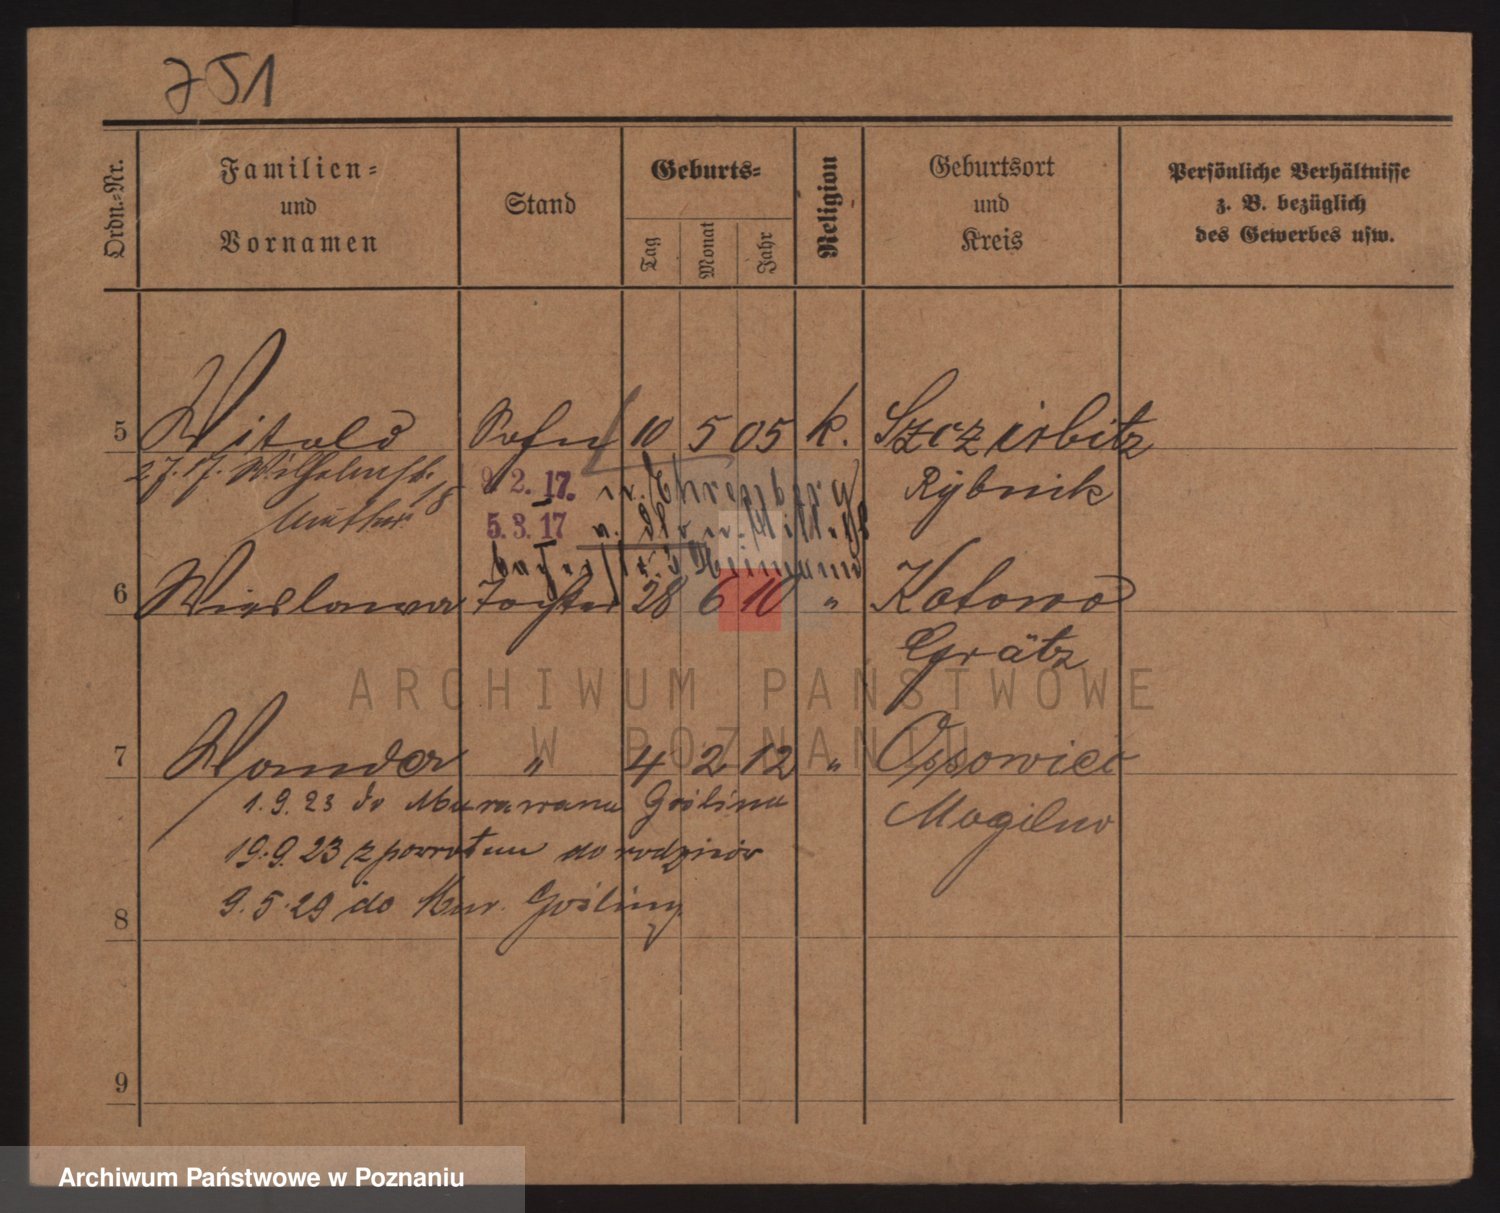 751
Ordn.-Nr.
Familien-
und
Vornamen
Stand
Geburts-
Tag
Monat
Jahr
Religion
Geburtsort
und
Kreis
Persönliche Verhältnisse
z. B. bezüglich
des Gewerbes usw.
5 Witold Sohn 10 5 05 k. Szczirbitz
Wilhelmstr. 18 9. 2. 17. Rybnik
5. 3. 17
6 Wieslawa Tochter 28 6 10 " Kotowo
Grätz
ARCHIWUM PAŃSTWOWE
W POZNANIU
7 Wanda " 4 2 12 " Ossowiec
1.9.23 do Murowana Goślina Mogilno
19.9.23 z powrotem do rodziców
8 9.5.29 do Mur. Gośliny
9
Archiwum Państwowe w Poznaniu